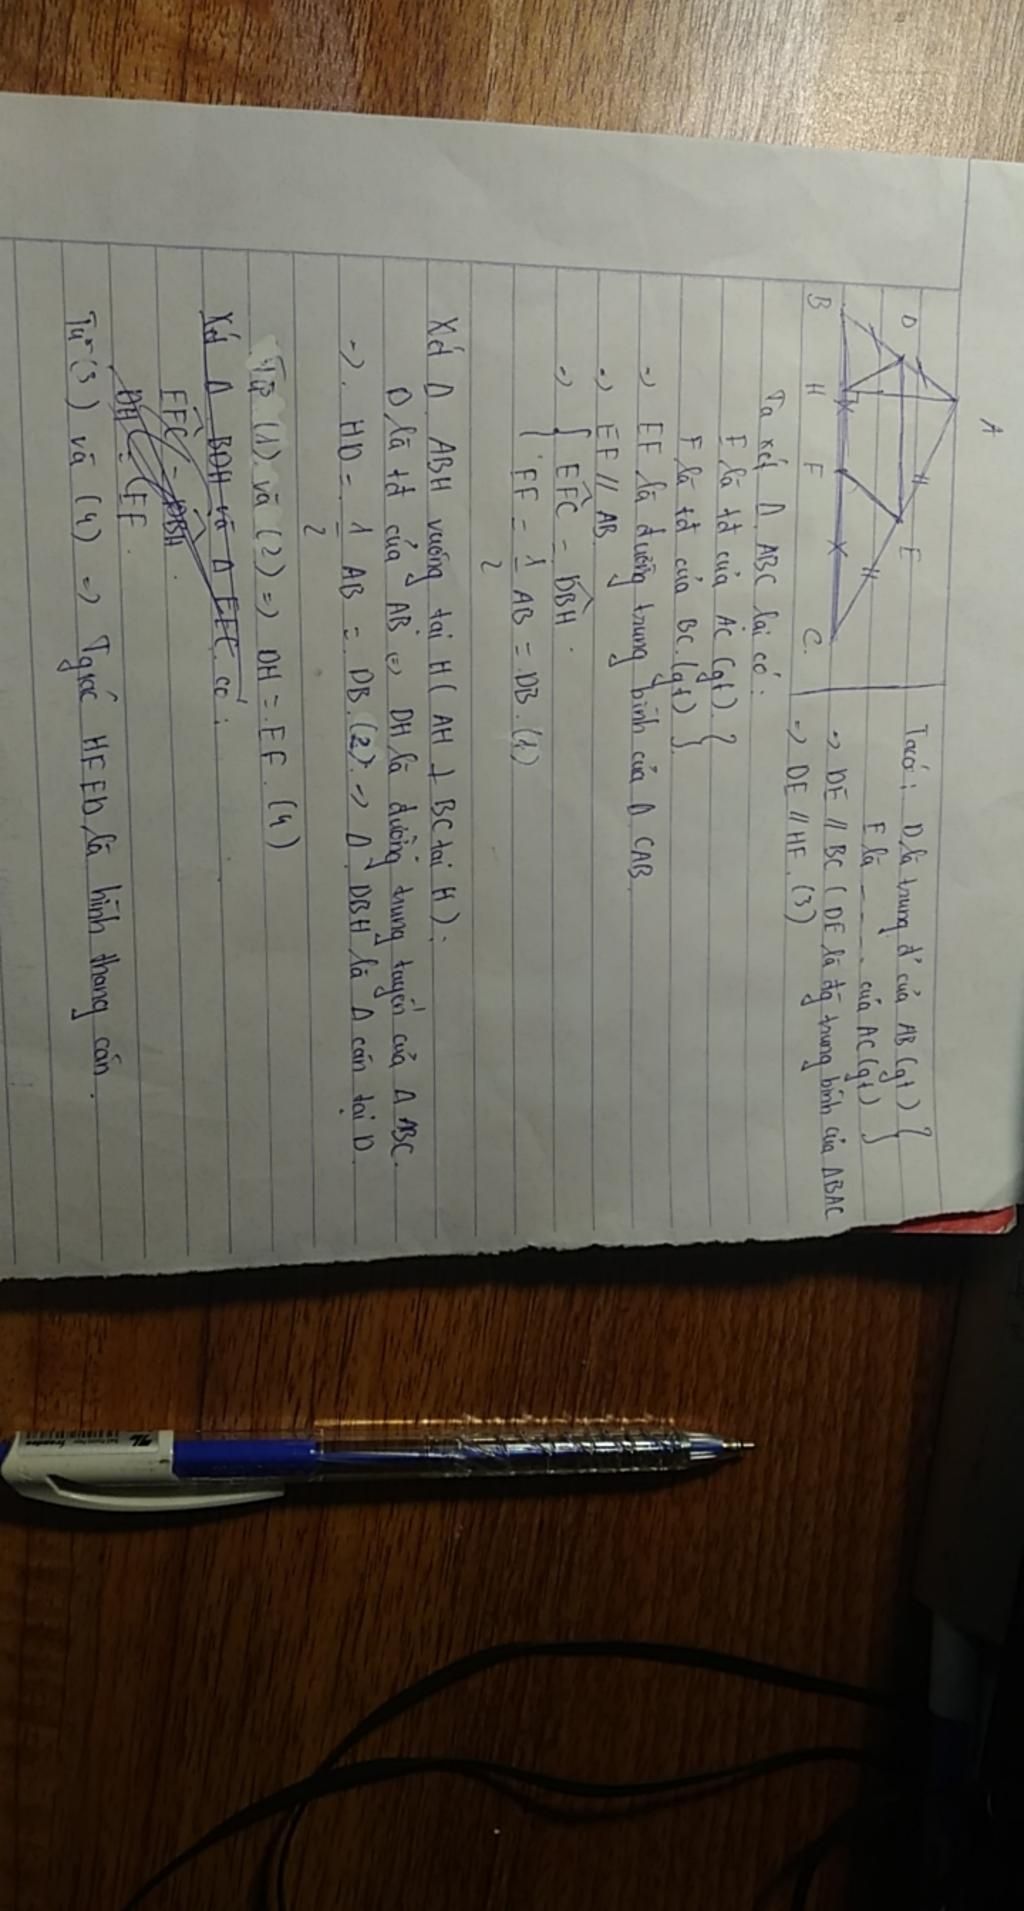 A
D
E
B
H
F
C.
Ta có: D là trung đ' của AB (gt) }
E là - - - - của AC (gt) }
=> DE // BC (DE là đg trung bình của ΔBAC
=> DE // HF. (3)
Ta xét Δ ABC lại có:
E là tđ của AC (gt) }
F là tđ của BC. (gt) }
=> EF là đường trung bình của Δ CAB
=> EF // AB
=> { EFC = DBH.
{ EF = 1/2 AB = DB. (1)
Xét Δ ABH vuông tại H (AH ⊥ BC tại H):
D là tđ của AB => DH là đường trung tuyến của Δ ABC.
=> HD = 1/2 AB = DB. (2) => Δ DBH là Δ cân tại D
Từ (1) và (2) => DH = EF. (4)
Xét Δ BDH và Δ EFC có:
EFC = DBH
DH = EF.
Từ (3) và (4) => Tgiác HFED là hình thang cân.